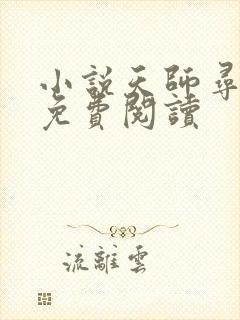 小說天師尋
免費閱讀
流離雲